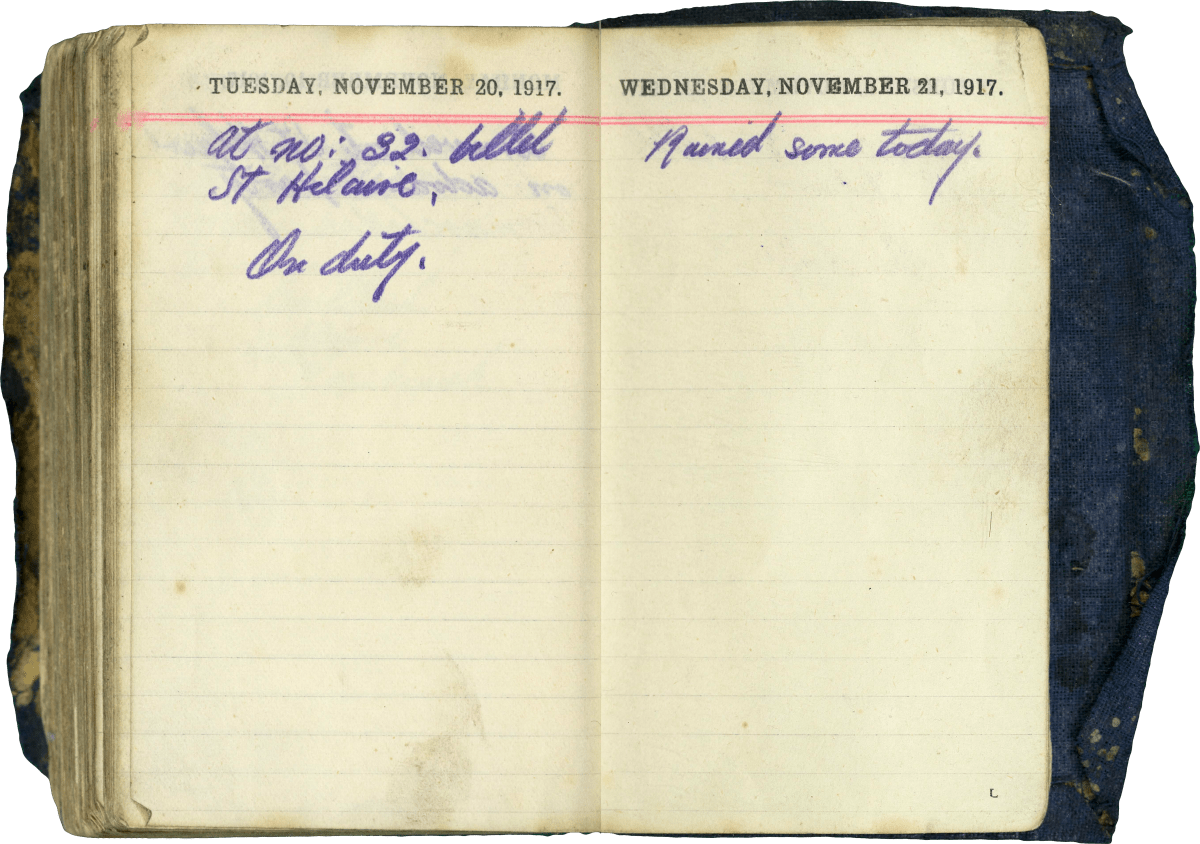 TUESDAY, NOVEMBER 20, 1917.
at no: 32. billet
St Hilaire,
On duty.
WEDNESDAY, NOVEMBER 21, 1917.
Rained some today.
L